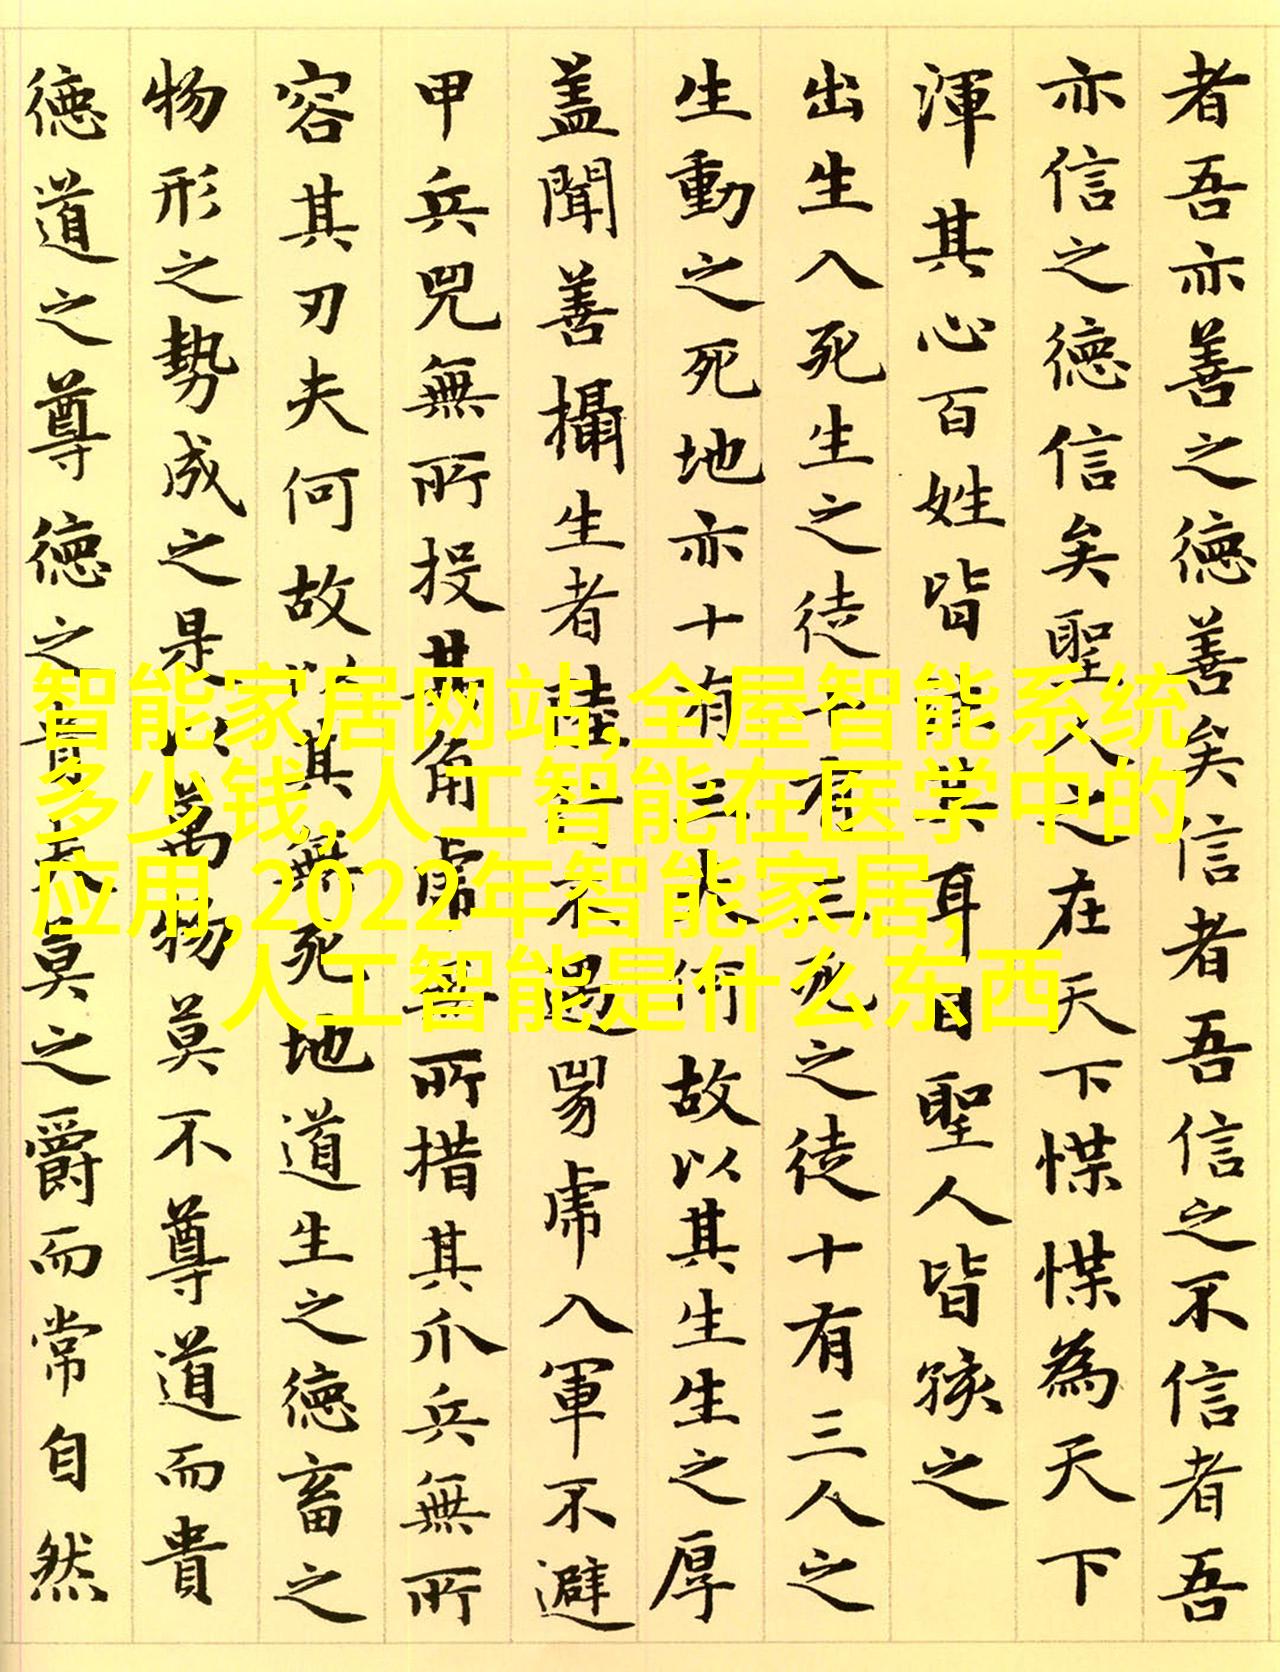 者吾亦善之德善矣信者吾信之不信者吾
亦信之德信矣聖人之在天下惵惵為天下
渾其心百姓皆其耳目聖人皆孩之
出生入死生之徒十有三死之徒十有三人之
生動之死地亦十有三夫何故以其生生之厚
蓋聞善攝生者陸行不遇兕虎入軍不避
甲兵兕無所投其角虎無所措其爪兵無所
容其刃夫何故以其無死地道生之德畜之
物形之勢成之是以萬物莫不尊道而貴
德道之尊德之貴夫莫之爵而常自然
智能家居网站,全屋智能系统
多少钱,人工智能在医学中的
应用,2022年智能家居,
人工智能是什么东西